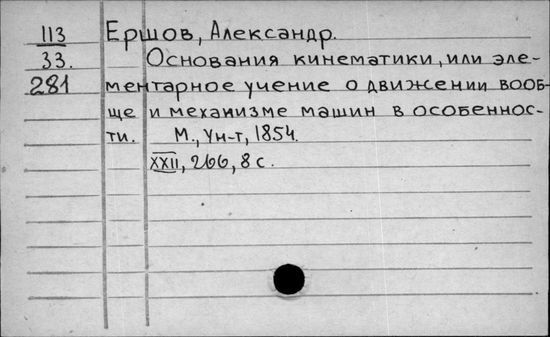 113 Ершов, Александр.
33. Основания кинематики, или эле-
281 ментарное учение о движении вооб-
ще и механизме машин в особеннос-
ти. М., Ун-т, 1854.
XXII, 266, 8 с.